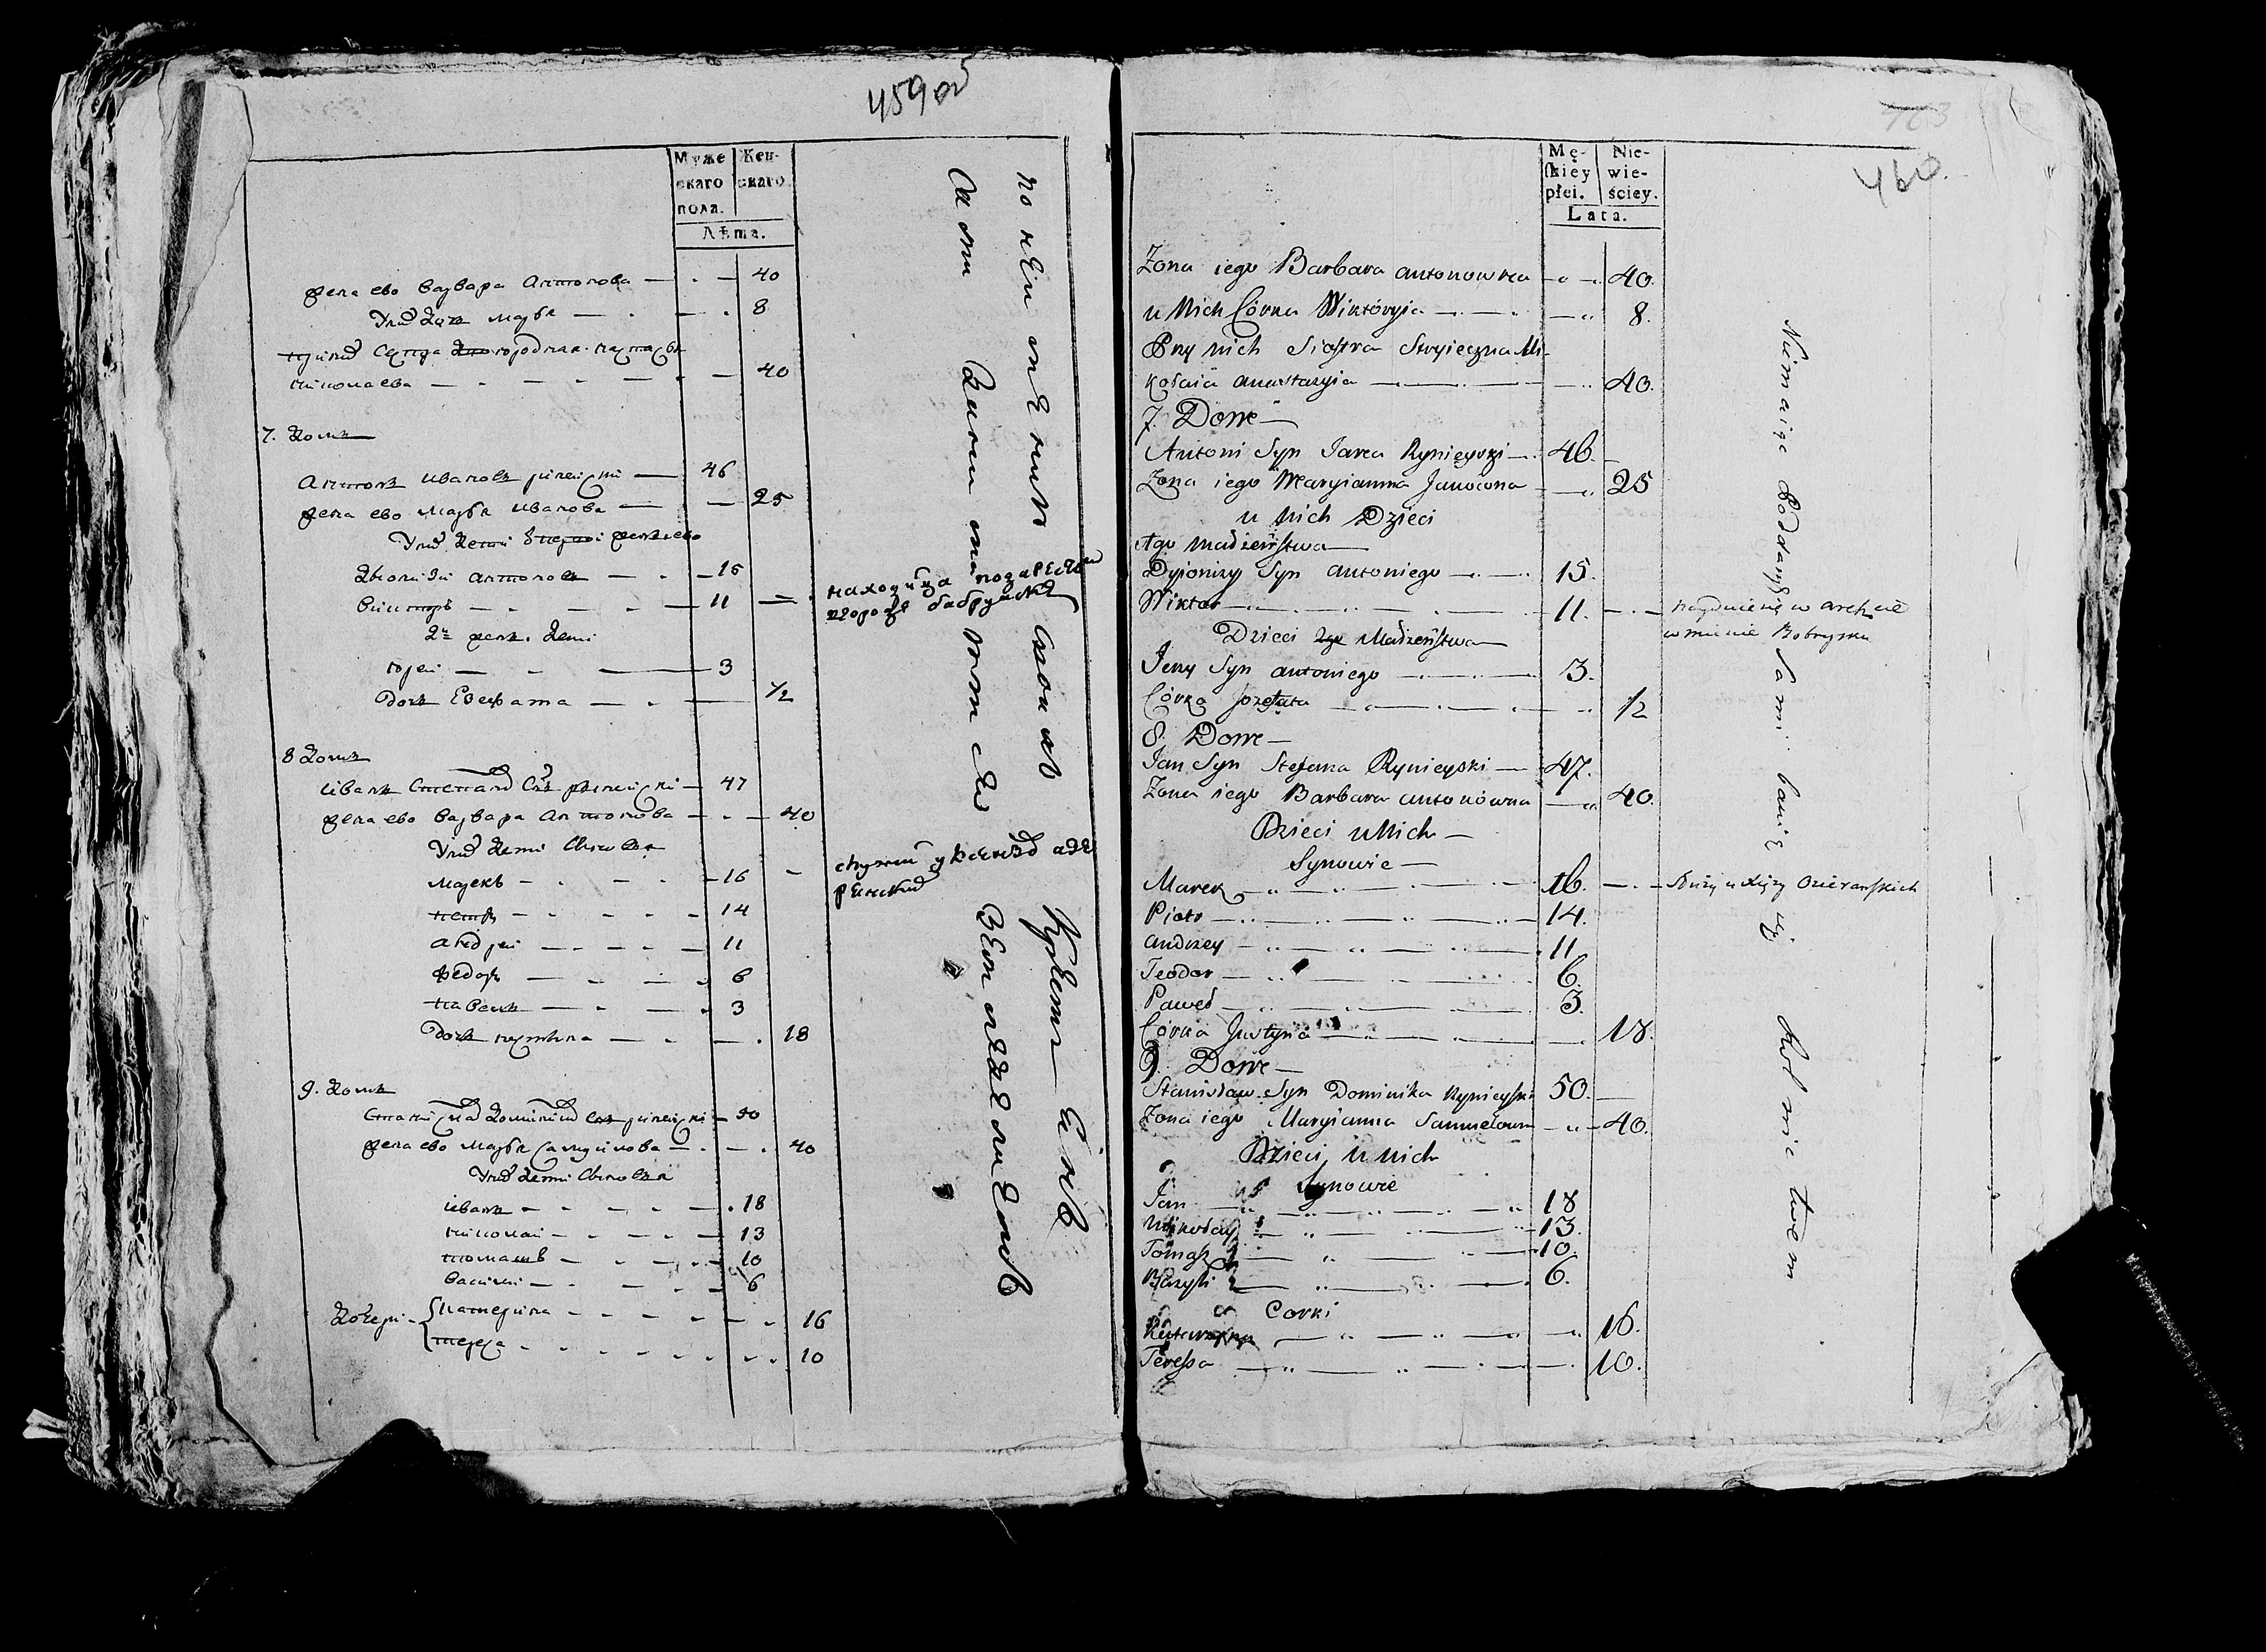 459 об
Муже
скаго
пола.
Жен-
скаго
Лѣта.
жена ево варвара антонова — 40
у них дочь марья — 8
при них сестра
николаева — 40
7. домъ
антонъ ивановъ рынейски — 46
жена ево марья иванова — 25
у них дети первой жены ево
дионизи антоновъ — 15
викторъ — 11
находица
городе бабруиске
2й жены дети
юреи — 3
дочь Езефата — 1/2
8 домъ
иванъ степанов сынъ рынейски — 47
жена ево варвара антонова — 40
у них дети сыновья
марекъ — 16
служит у
петръ — 14
андреи — 11
федоръ — 6
павелъ — 3
дочь юстына — 18
9. домъ
станислав домиников сынъ рынейски — 50
жена ево марья самуилова — 40
у них дети сыновья
иванъ — 18
николаи — 13
томашъ — 10
василеи — 6
дочери
катерина — 16
тереса — 10
460.
Mę-
skiey
płci.
Nie-
wie-
ściey.
Lata.
Żona iego Barbara antonowna — 40.
u Nich Córka Wiktóryia — 8.
Przy nich Siostra Stryieczna Mi-
kołaia anastazyia — 40.
7. Dom
Antoni Syn Jana Rynieyski — 46.
Zona iego Maryianna Janowna — 25
u nich Dzieci
1go Małżeństwa
Dyjonizy Syn antoniego — 15.
Wiktor — 11. — znayduie się w areszcie
w mieście Bobrysku
Dzieci 2go Małżeństwa
Jerzy Syn antoniego — 3.
Córka Jozefata — 1/2
8. Dom
Jan Syn Stefana Rynieyski — 47.
Zona iego Barbara antonówna — 40.
Dzieci u Nich
Synowie
Marek — 16. — Służy u Xięży Ozierańskich
Piotr — 14.
andrzey — 11.
Teodor — 6.
Paweł — 3.
Córka Justyna — 18.
9. Dom
Stanisław Syn Dominika Rynieyski 50.
Zona iego Maryianna Samuelowna — 40.
Dzieci u nich
Synowie
Jan — 18
Mikołay — 13.
Tomasz — 10.
Bazyli — 6.
Corki
Katarzyna — 16.
Teressa — 10.
Niemaiąc Poddanych Sami bawią się Rolnictwem